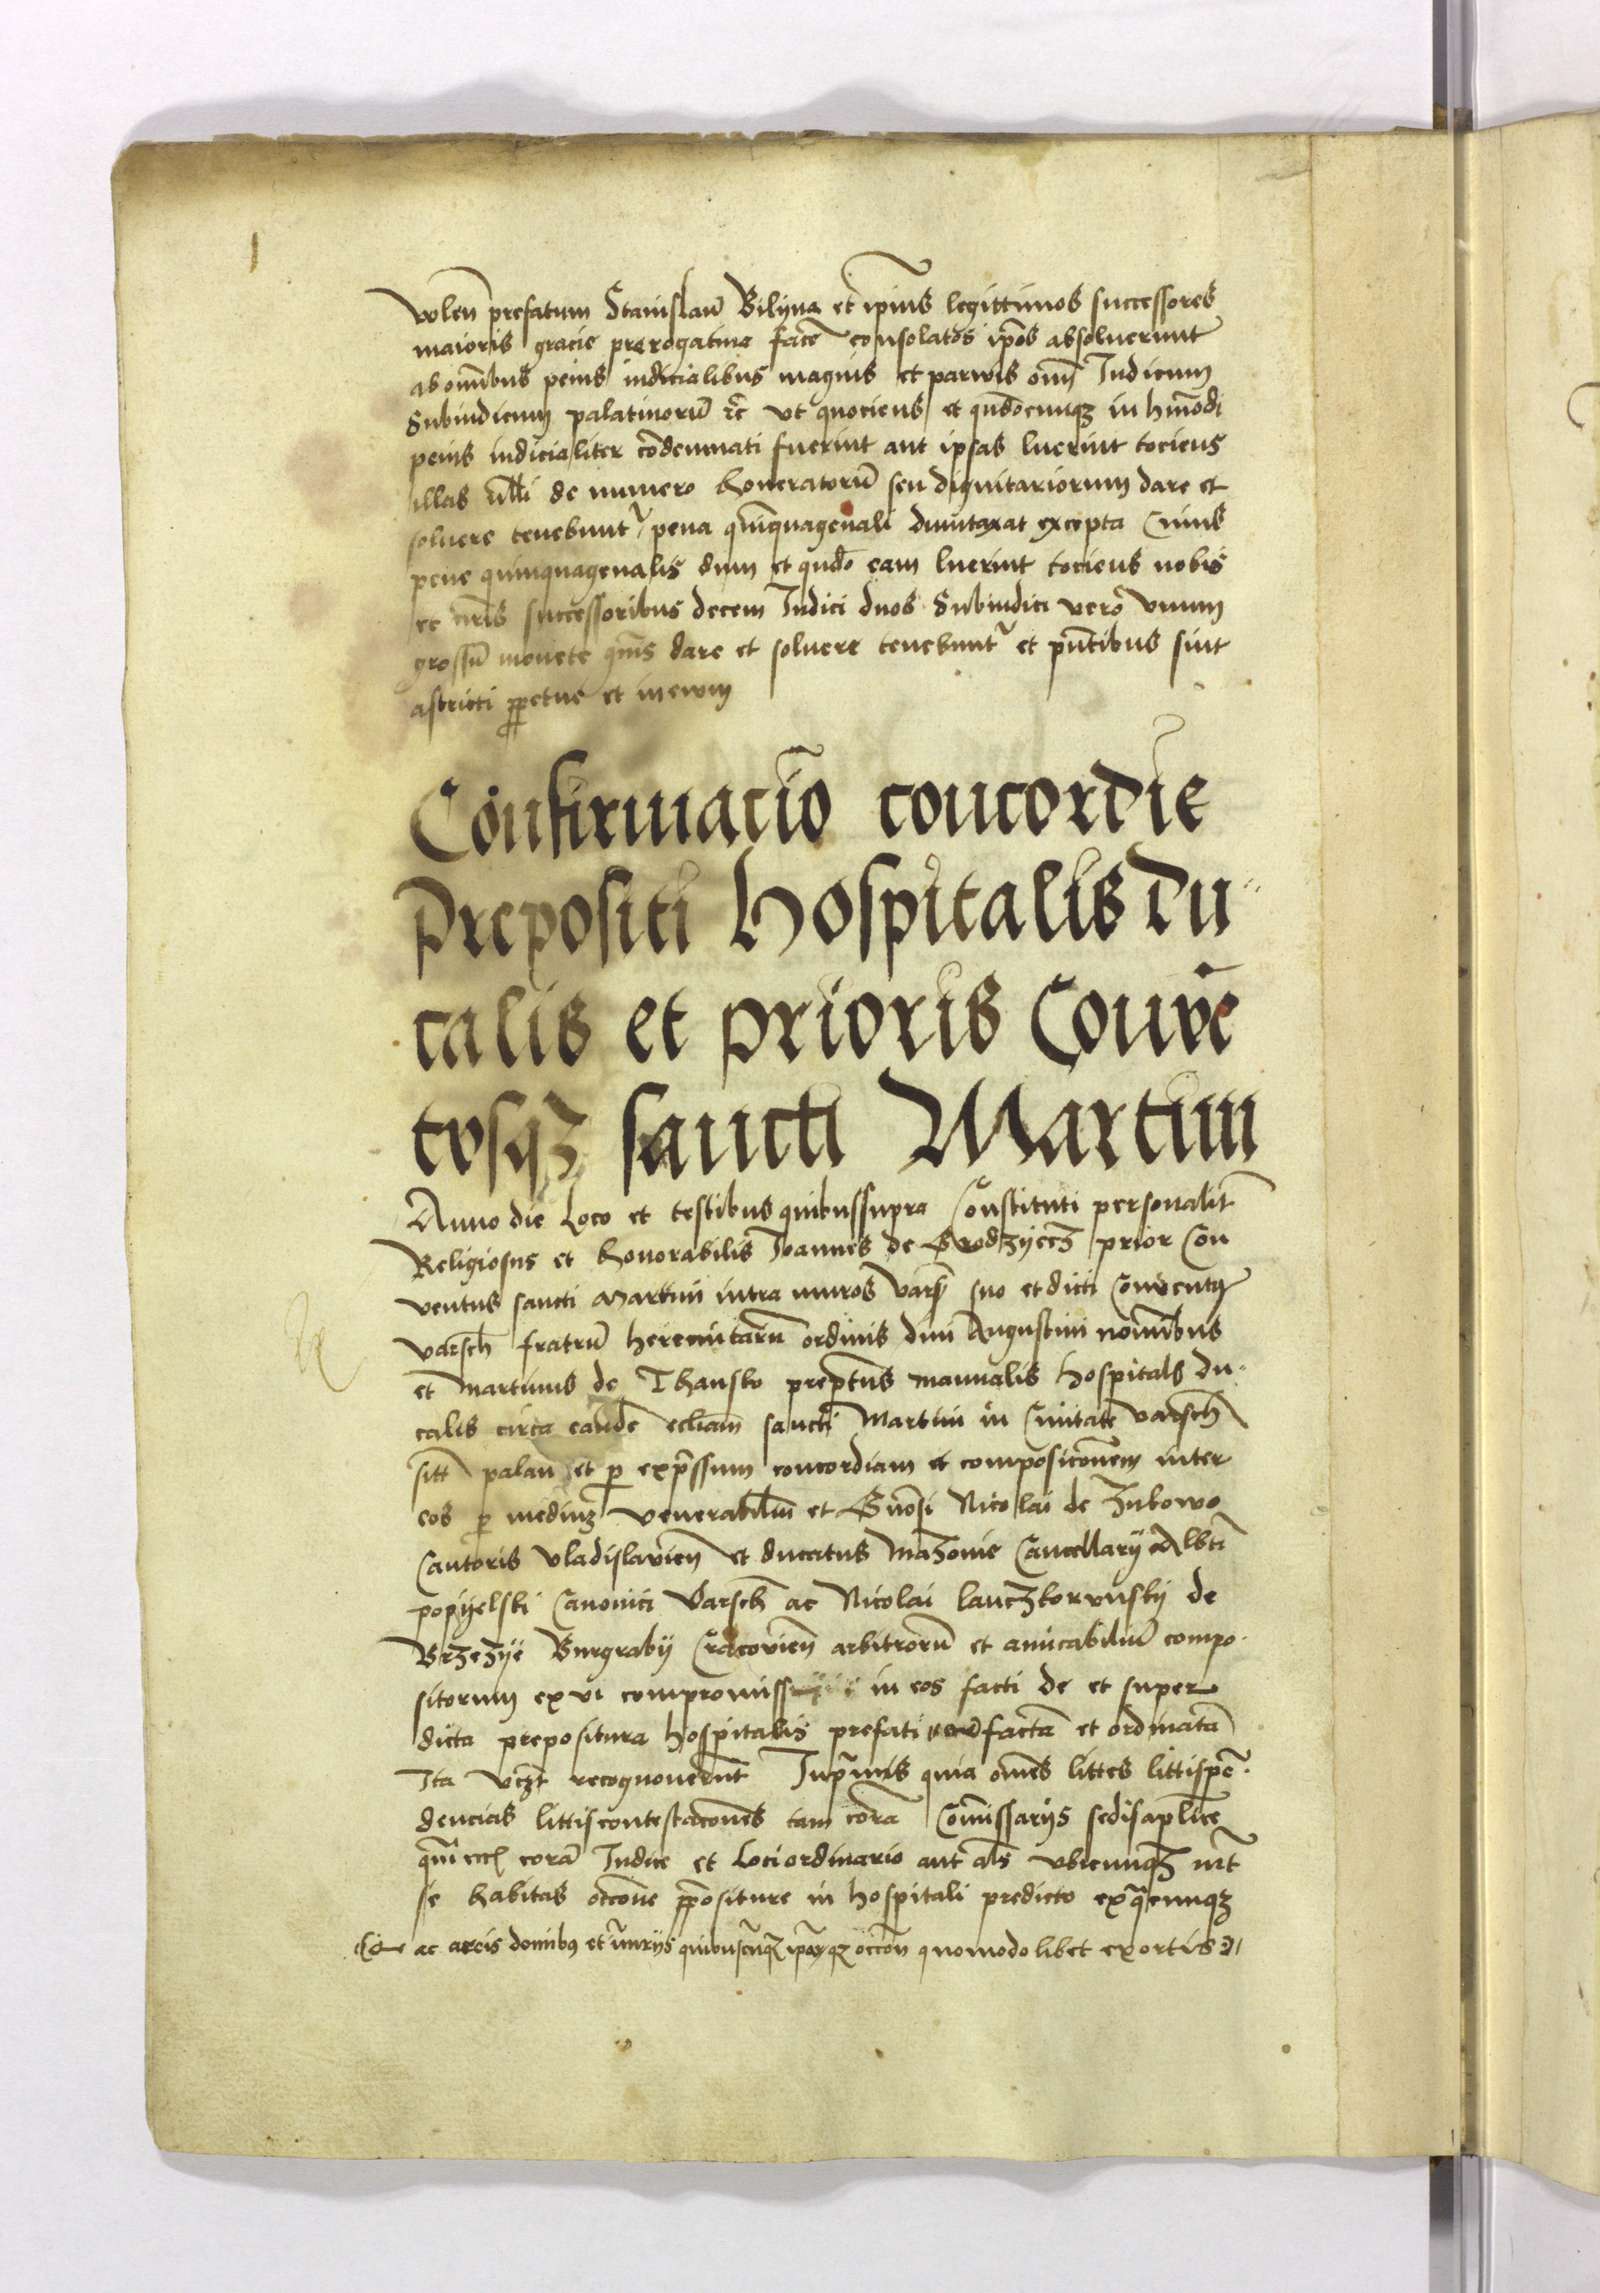 volen̄ prefatum Stanislaū Bilyna et ip̄ius legittimos successores
maioris gracie prerogatiua facē consolatos ip̄os absoluerunt
ab om̄ibus penis iudicialibus magnis et parwis om̄ Iudicum
Subiudicum palatinorū ꝛc̄ vt quociens et qn̄docunqꝫ in hm̄odi
penis iudicialiter cōdemnati fuerint aut ipsas luerint tociens
illas nlli de numero honeratorū seu dignitariorum dare et
soluere tenebunt᷑ pena qn̄quagenali dumtaxat excepta Cuius
pene quinquagenalis dum et qn̄do eam luerint tociens nobis
et nr̄is successoribus decem Iudici duos Subiudici vero vnum
grossū monete qn̄is dare et soluere tenebunt᷑ et pn̄tibus sint
astricti ꝑpetue et inewm
Confirmacio concordie
Prepositi Hospitalis du-
calis et prioris Conuē
tusqꝫ sancti Martini
Anno die Loco et testibus quibussupra Constituti personalit᷑
Religiosus et honorabilis Ioannes de Grodzyecz prior Con
ventus sancti Martini intra muros Varsch̄ suo et dicti Conventꝰ
varsch̄ fratrū heremitarū ordinis diui Augustini nomībus
et Martinus de Thansko prep̄tus manualis Hospitalis du-
calis circa eandē ecliam sancti Martini in Ciuitate varsch̄
sitt̄ palam et ꝑ exp̄ssum concordiam et composicōnem inter
eos ꝑ mediuꝫ venerabiliū et Gn̄osi Nicolai de Zukowo
Cantoris vladislavien̄ et ducatus Mazouie Cancellarij Alb̄ti
popyelski Canonici Varsch̄ ac Nicolai lanczkorunsky de
Brzezye Burgrabij Cracovien̄ arbitrorū et amicabiliū compo-
sitorum ex vi compromiss in eos facti de et super
dicta prepositura hospitalis prefati factā et ordinatā
Ita vcꝫt recognouerūt Inp̄mis quia om̄es littes littispē-
dencias littiscontestacōnes tam corā Com̄issarijs sedis ap̄lice
qm̄ ecc̄l corā Iudice et Loci ordinario aut al̄s vbicunqꝫ int᷑
se habitas occ̄one p̄positure in hospitali predicto exq̄cunqꝫ
ac areis domibꝰ et vn̄rijs quibuscunqꝫ ip̄aꝝqꝫ occ̄on quomodolibet exortis